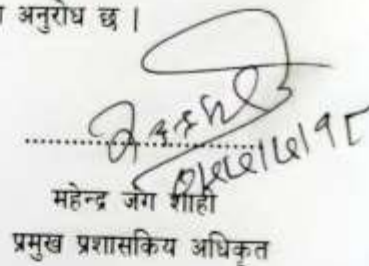 अनुरोध छ ।
महेन्द्र जंग शाही
प्रमुख प्रशासकिय अधिकृत